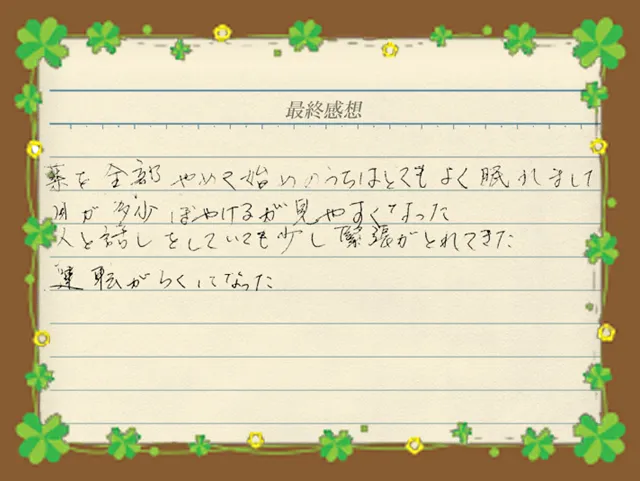 最終感想
薬を全部やめて始めのうちはとてもよく眠れまして
目が多少ぼやけるが見やすくなった
人と話しをしていても少し緊張がとれてきた
運転がらくになった